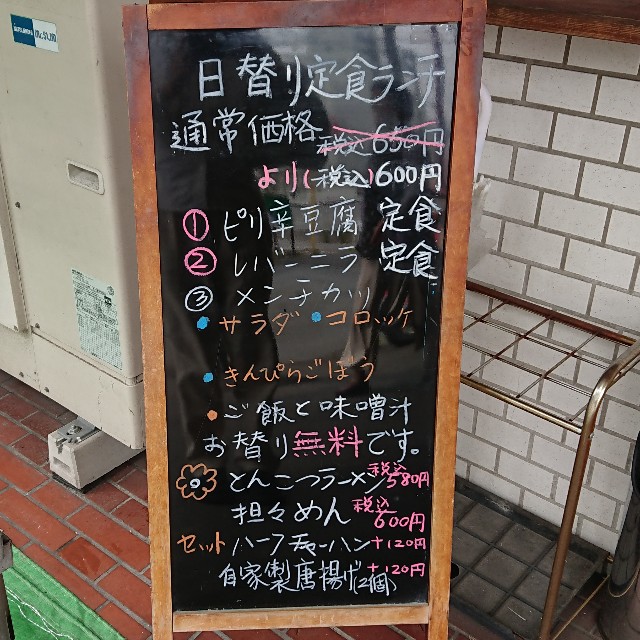 日替り定食ランチ
通常価格 税込650円
より(税込)600円
① ピリ辛豆腐 定食
② レバーニラ 定食
③ メンチカツ
・サラダ ・コロッケ
・きんぴらごぼう
・ご飯と味噌汁
お替り無料です。
とんこつラーメン 税込580円
担々めん 税込600円
セット ハーフチャーハン+120円
自家製唐揚げ(2個)+120円